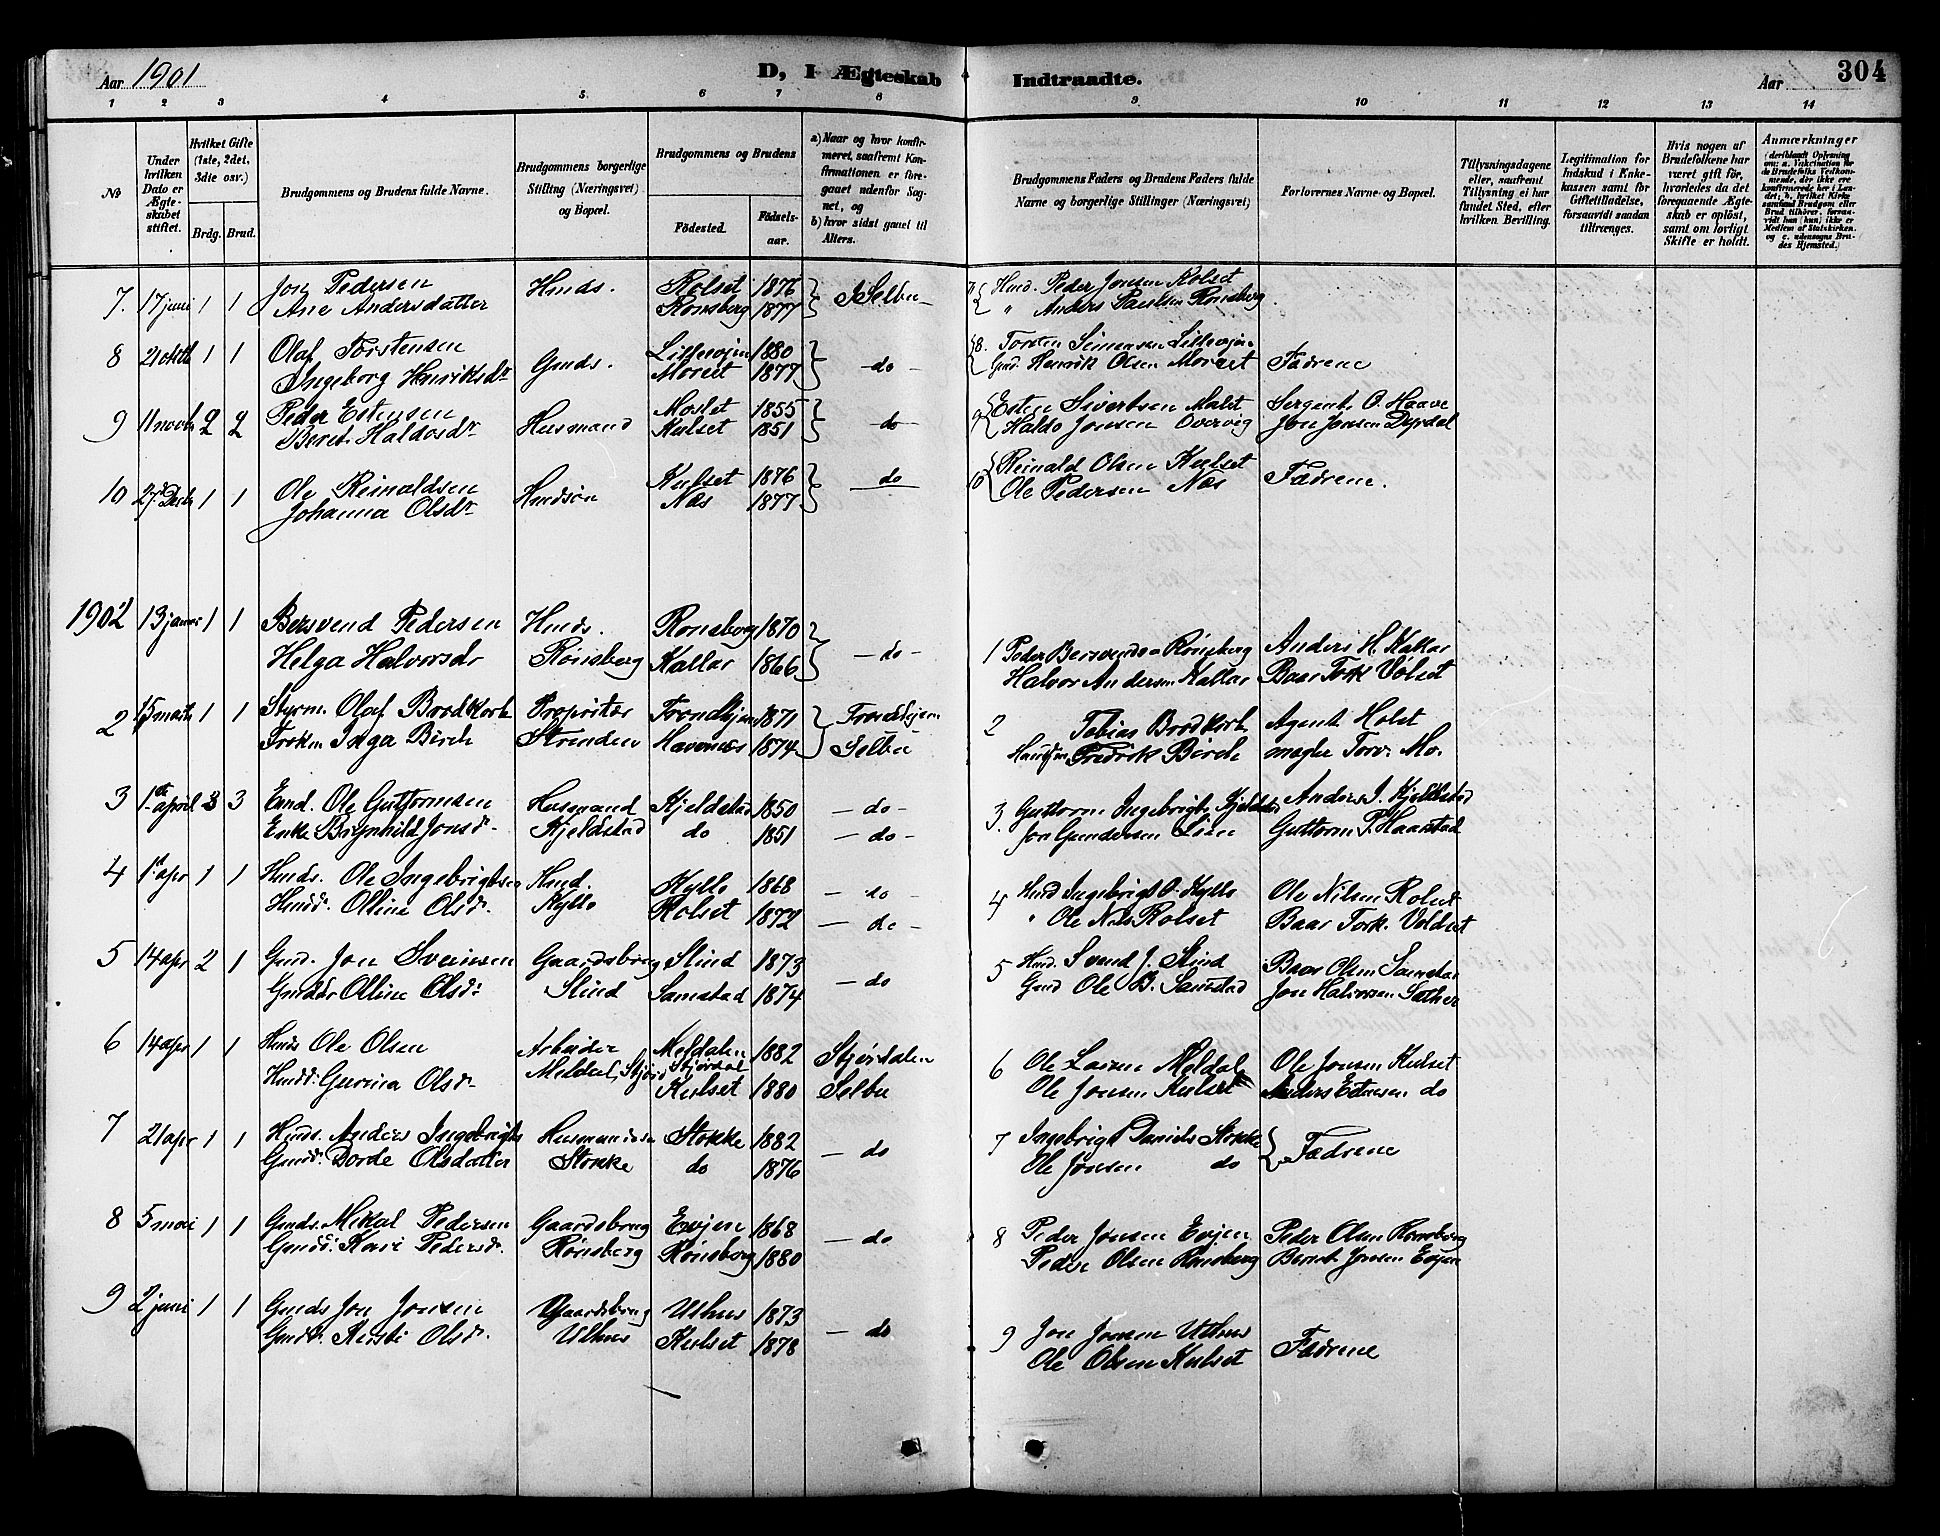 Aar 1901
D, I Ægteskab Indtraadte.
Aar
304
1 2 3 4 5. 6 7 8 9 10 11 12 13 14
№
Under hvilken Dato er Ægteskabet stiftet.
Hvilket Gifte (1ste, 2det, 3die osv.)
Brdg. Brud.
Brudgommens og Brudens fulde Navne.
Brudgommens borgerlige Stilling (Næringsvei) og Bopæl.
Brudgommens og Brudens
Fødested. Fødselsaar.
a) Naar og hvor konfirmeret, saafremt Konfirmationen er foregaaet udenfor Sognet, og
b) hvor sidst gaaet til Alters.
Brudgommens Faders og Brudens Faders fulde Navne og borgerlige Stillinger (Næringsvei)
Forlovernes Navne og Bopæl.
Tillysningsdagene eller, saafremt Tillysning ei har fundet Sted, efter hvilken Bevilling.
Legitimation for Indskud i Enkekassen samt for Giftetilladelse, forsaavidt saadan tiltrænges.
Hvis nogen af Brudefolkene har været gift før, hvorledes da det foregaaende Ægteskab er opløst, samt om lovligt Skifte er holdt.
Anmærkninger
7. 17 juni 1 1 Jon Pedersen Hmds. Rolset 1876 I Selbu 7 Hmd. Peder Jonsen Rolset
Ane Andersdatter Rønsberg 1877 " Anders Paulsen Rønsberg
8 1 1 Olaf Torstensen Gmds. Lillevjen 1880 do 8. Torsten Simensen Lillevjen
Ingeborg Henriksdr Morset 1877 Gmd. Henrik Olsen Morset Fædrene
9 11 novb 2 2 Peder Estensen Husmand Moslet 1855 do 9 Esten Sivertsen Sergent O. Haave
Beret Haldosdr Kulset 1851 Haldo Jonsen Overvig Jon Jonsen Dyrdal
10 27 Decb 1 1 Ole Reinaldsen Hmdsøn Kulset 1876 do 10 Reinald Olsen Kulset Fædrene.
Johanna Olsdr Næs 1877 Ole Pedersen Næs
1902 1 13 januar 1 1 Bersvend Pedersen Hmds. Rønsberg 1870 do 1 Peder Bersvendsen Rønsberg Anders H. Kallar
Helga Halvorsdr Rønsberg Kallar 1866 Halvor Andersen Kallar Baar Tork Volset
2 15 marts 1 1 Styrm. Olaf Brodkorb Proprietær Trondhjem 1871 Trondhjem 2 Tobias Brodkorb Agent Holst
Frøken Inga Birch Strinden Havernæs 1874 Selbu Fredrik Birch megler Torv. Mo.
3 1ste april 3 3 Emd. Ole Guttormsen Husmand Kjeldstad 1850 do 3. Guttorm Ingebrigts Kjeldstad Anders J. Kjeldstad
Enke Brynhild Jonsdr. Kjeldstad do 1851 do Jon Gundersen Lien Guttorm P. Haarstad
4 1st apr 1 1 Hmds. Ole Ingebrigtsen Hmd. Kyllo 1868 do 4 Hmd Ingebrigt O. Kyllo Ole Nilsen Rolset
Hmdd. Olline Olsdr. Kyllo Rolset 1872 do " Ole Nils. Rolset Baar Tork. Voldset
5 14 apr 2 1 Gmd. Jon Svensen Gaardsbrug Slind 1873 do 5 Hmd. Svend J. Slind Baar Olsen Samstad
Gmddr Olline Olsdr Slind Samstad 1874 Gmd Ole B. Samstad Jon Halvorsen Sæther
6 14 apr 1 1 Hmds Ole Olsen Arbeider Meldalen Stjørdal 1882 Stjørdalen 6 Ole Larsen Meldal Ole Jonsen Kulset
Hmdd. Gurina Olsdr Meldal, Stjørd Kulset 1880 Selbu Ole Jonsen Kulset Anders Estensen do
7 21 apr 1 1 Hmds. Anders Ingebrigts Husmandssøn Stokke 1882 do 7 Ingebrigt Daniels Stokke Fædrene
Gmdd. Dorde Olsdatter Stokke do 1876 Ole Jonsen do
8 5 mai 1 1 Gmds. Mikal Pedersen Gaardsbrug Evjen 1868 do 8 Peder Jonsen Evjen Peder Olsen Rønsberg
Gmdd. Kari Pedersdr. Rønsberg Rønsberg 1880 Peder Olsen Rønsberg Bernt Jonsen Evjen
9 2 juni 1 1 Gmds Jon Jonsen Gaardsbrug Uthus 1873 do 9 Jon Jonsen Uthus Fædrene
Gmdd. Kirsti Olsdr. Uthus Kulset 1878 Ole Olsen Kulset